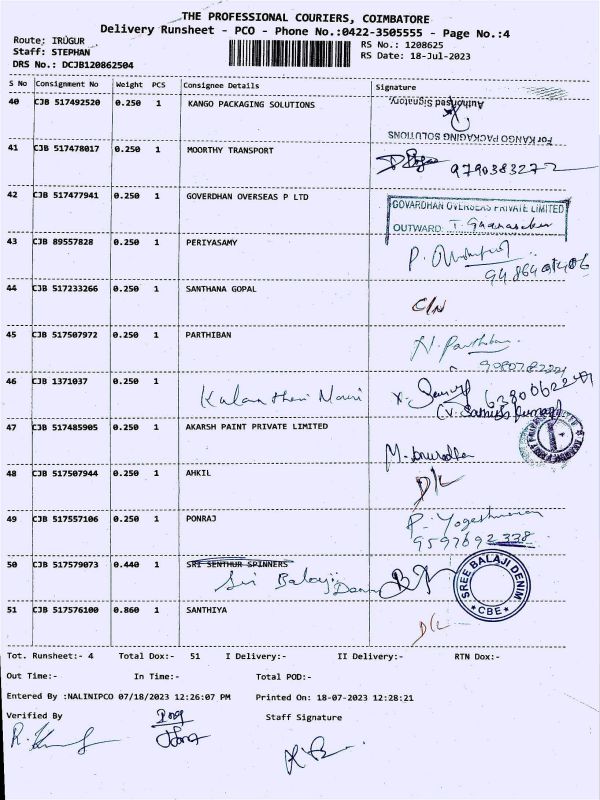 THE PROFESSIONAL COURIERS, COIMBATORE
Delivery Runsheet - PCO - Phone No.:0422-3505555 - Page No.:4
Route: IRUGUR
RS No.: 1208625
Staff: STEPHAN
RS Date: 18-Jul-2023
DRS No.: DCJB120862504
S No Consignment No Weight PCS Consignee Details Signature
40 CJB 517492520 0.250 1 KANGO PACKAGING SOLUTIONS
Authorised Signatory
For KANGO PACKAGING SOLUTIONS
41 CJB 517478017 0.250 1 MOORTHY TRANSPORT
9790383272
42 CJB 517477941 0.250 1 GOVERDHAN OVERSEAS P LTD
GOVARDHAN OVERSEAS PRIVATE LIMITED
OUTWARD:
43 CJB 89557828 0.250 1 PERIYASAMY
44 CJB 517233266 0.250 1 SANTHANA GOPAL
C/N
45 CJB 517507972 0.250 1 PARTHIBAN
N. Parthiban
46 CJB 1371037 0.250 1
47 CJB 517485905 0.250 1 AKARSH PAINT PRIVATE LIMITED
48 CJB 517507944 0.250 1 AHKIL
D/L
49 CJB 517557106 0.250 1 PONRAJ
9597692338
50 CJB 517579073 0.440 1 SRI SENTHUR SPINNERS
Sri Balaji Denim
SREE BALAJI DENIM
*CBE*
51 CJB 517576100 0.860 1 SANTHIYA
D/L
Tot. Runsheet:- 4 Total Dox:- 51 I Delivery:- II Delivery:- RTN Dox:-
Out Time:- In Time:- Total POD:-
Entered By :NALINIPCO 07/18/2023 12:26:07 PM Printed On: 18-07-2023 12:28:21
Verified By Staff Signature